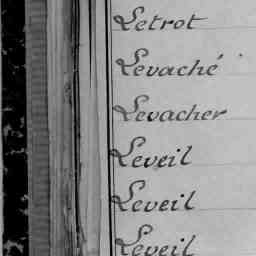 Letrot
Levaché
Levacher
Leveil
Leveil
Leveil